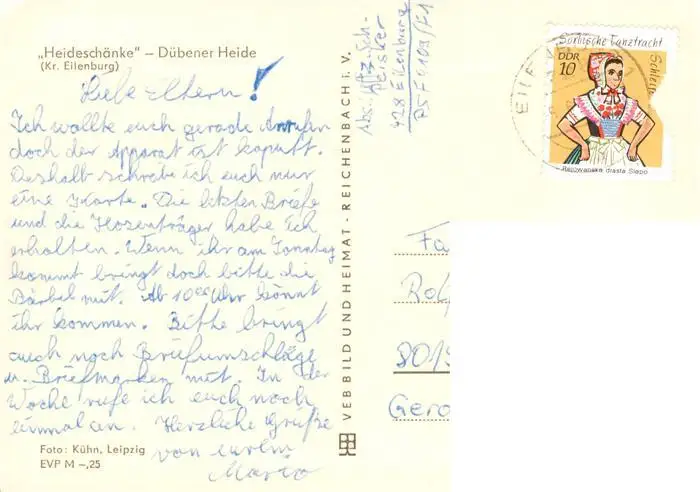 „Heideschänke" – Dübener Heide
(Kr. Eilenburg)
Liebe Eltern!
Ich wollte euch gerade Anrufen
doch der Apparat ist kaputt.
Deshalb schreibe ich euch nur
eine Karte. Die letzten Briefe
und die Hosenträger habe ich
erhalten. Wenn ihr am Sonntag
kommt bringt doch bitte die
Bärbel mit. Ab 10⁰⁰ Uhr könnt
ihr kommen. Bitte bringt
auch noch Briefumschläge
u. Briefmarken mit. In der
Woche rufe ich euch noch
einmal an. Herzliche Grüße
von eurem
Mario
Foto: Kühn, Leipzig
EVP M –,25
VEB BILD UND HEIMAT - REICHENBACH i. V.
Abs. Uffz.-Sch.
428 Eilenburg
PSF 4109/F1
Sorbische Tanztracht
DDR
10
Schleife
Rejowanska drasta Slepo
EILE
Fa
Rol
801
Gero